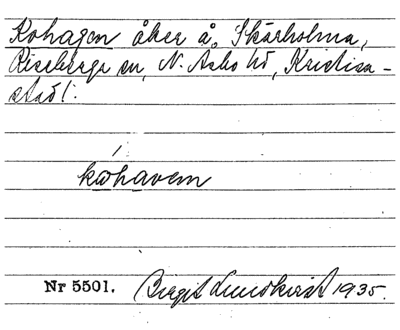 Kohagen åker å. Skärholma,
Riseberga sn, N. Åsbo hd, Kristian-
stads l.
kohavem
Nr 5501. Birgit Lundkvist 1935.